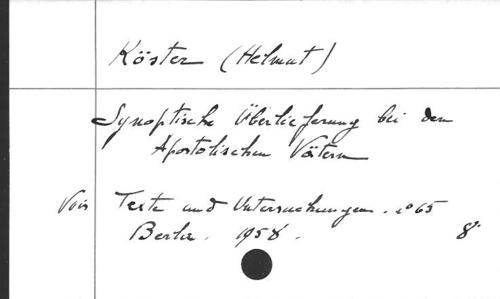 Köster (Helmut)
Synoptische Überlieferung bei den
Apostolischen Vätern
Voir Texte und Untersuchungen. n° 65
Berlin. 1958. 8°